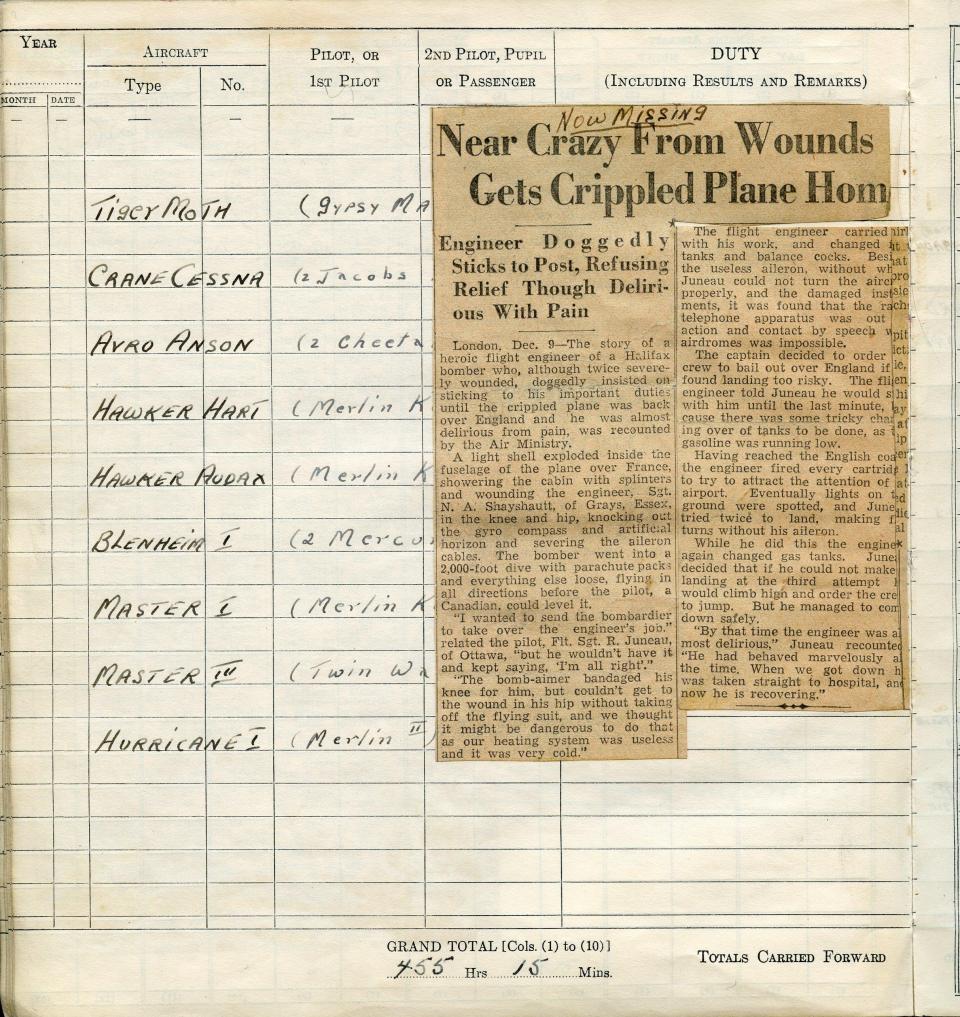 YEAR
AIRCRAFT
PILOT, OR
1ST PILOT
2ND PILOT, PUPIL
OR PASSENGER
DUTY
(INCLUDING RESULTS AND REMARKS)
MONTH DATE
Type No.
— — — — —
TIGER MOTH (GYPSY MA
CRANE CESSNA (2 Jacobs
AVRO ANSON (2 Cheeta
HAWKER HART (Merlin K
HAWKER AUDAX (Merlin K
BLENHEIM I (2 Mercu
MASTER I (Merlin K
MASTER III (Twin Wa
HURRICANE I (Merlin II)
NOW MISSING
Near Crazy From Wounds
Gets Crippled Plane Hom
Engineer Doggedly
Sticks to Post, Refusing
Relief Though Deliri-
ous With Pain
London, Dec. 9—The story of a
heroic flight engineer of a Halifax
bomber who, although twice severe-
ly wounded, doggedly insisted on
sticking to his important duties
until the crippled plane was back
over England and he was almost
delirious from pain, was recounted
by the Air Ministry.
A light shell exploded inside the
fuselage of the plane over France,
showering the cabin with splinters
and wounding the engineer, Sgt.
N. A. Shayshautt, of Grays, Essex,
in the knee and hip, knocking out
the gyro compass and artificial
horizon and severing the aileron
cables. The bomber went into a
2,000-foot dive with parachute packs
and everything else loose, flying in
all directions before the pilot, a
Canadian, could level it.
"I wanted to send the bombardier
to take over the engineer's job,"
related the pilot, Flt. Sgt. R. Juneau,
of Ottawa, "but he wouldn't have it
and kept saying, 'I'm all right'."
"The bomb-aimer bandaged his
knee for him, but couldn't get to
the wound in his hip without taking
off the flying suit, and we thought
it might be dangerous to do that
as our heating system was useless
and it was very cold."
The flight engineer carried
with his work, and changed
tanks and balance cocks. Besi
the useless aileron, without wh
Juneau could not turn the airc
properly, and the damaged inst
ments, it was found that the ra
telephone apparatus was out
action and contact by speech w
airdromes was impossible.
The captain decided to order
crew to bail out over England if
found landing too risky. The fli
engineer told Juneau he would s
with him until the last minute,
cause there was some tricky cha
ing over of tanks to be done, as
gasoline was running low.
Having reached the English coa
the engineer fired every cartridg
to try to attract the attention of
airport. Eventually lights on t
ground were spotted, and June
tried twice to land, making f
turns without his aileron.
While he did this the engine
again changed gas tanks. June
decided that if he could not make
landing at the third attempt
would climb high and order the cre
to jump. But he managed to com
down safely.
"By that time the engineer was a
most delirious," Juneau recounted
"He had behaved marvelously a
the time. When we got down h
was taken straight to hospital, and
now he is recovering."
GRAND TOTAL [Cols. (1) to (10)]
455 Hrs 15 Mins.
TOTALS CARRIED FORWARD